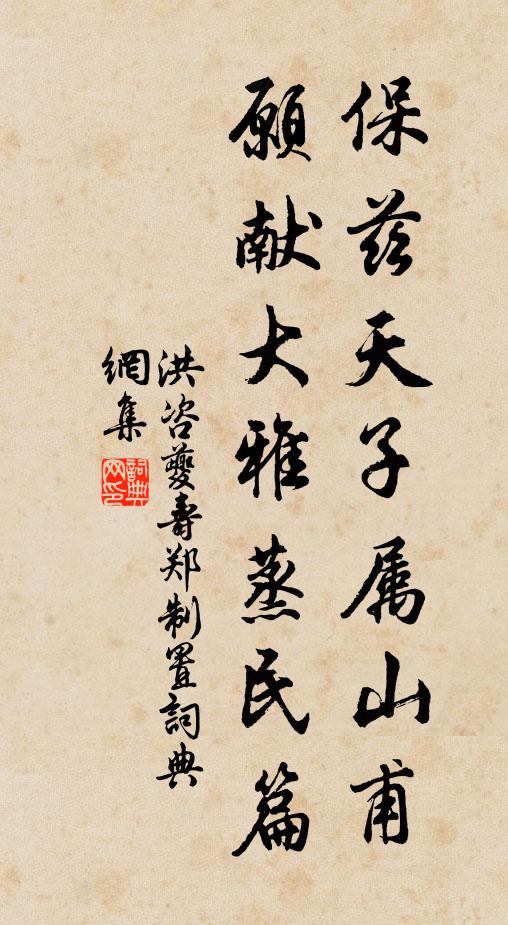 保兹天子属山甫
願献大雅蒸民篇
洪咨夔寿郑制置詞典
網集
詞典网印